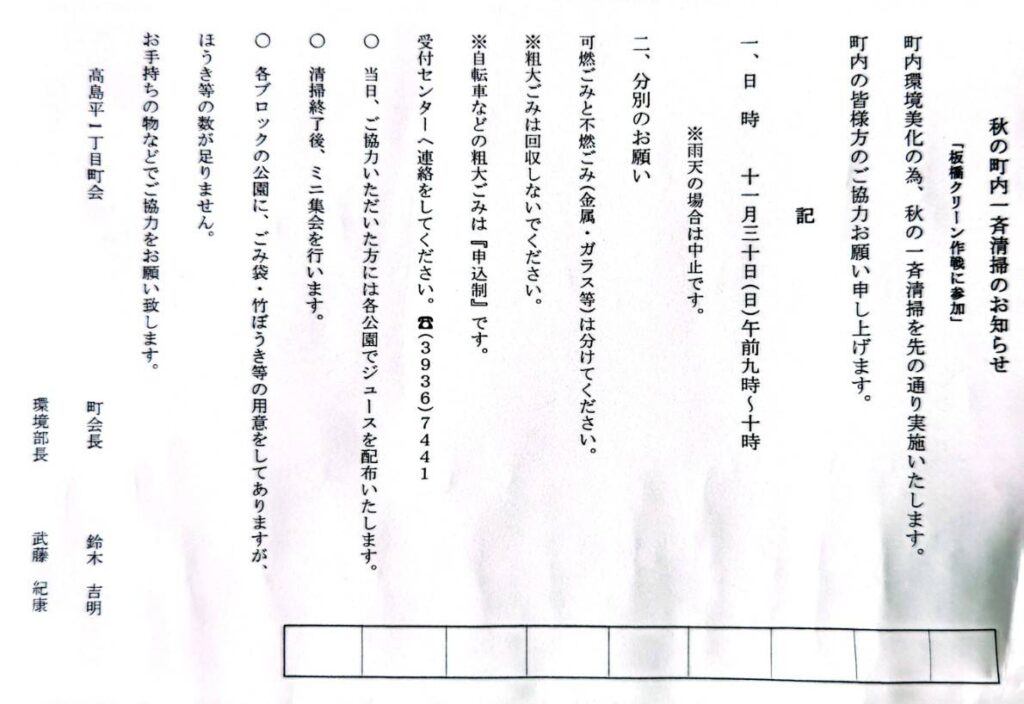 秋の町内一斉清掃のお知らせ
「板橋クリーン作戦に参加」
町内環境美化の為、秋の一斉清掃を先の通り実施いたします。
町内の皆様方のご協力お願い申し上げます。
記
一、日 時 十一月三十日(日)午前九時~十時
※雨天の場合は中止です。
二、分別のお願い
可燃ごみと不燃ごみ(金属・ガラス等)は分けてください。
※粗大ごみは回収しないでください。
※自転車などの粗大ごみは『申込制』です。
受付センターへ連絡をしてください。☎(3936)7441
○ 当日、ご協力いただいた方には各公園でジュースを配布いたします。
○ 清掃終了後、ミニ集会を行います。
○ 各ブロックの公園に、ごみ袋・竹ぼうき等の用意をしてありますが、
ほうき等の数が足りません。
お手持ちの物などでご協力をお願い致します。
高島平一丁目町会 町会長 鈴木 吉明
環境部長 武藤 紀康